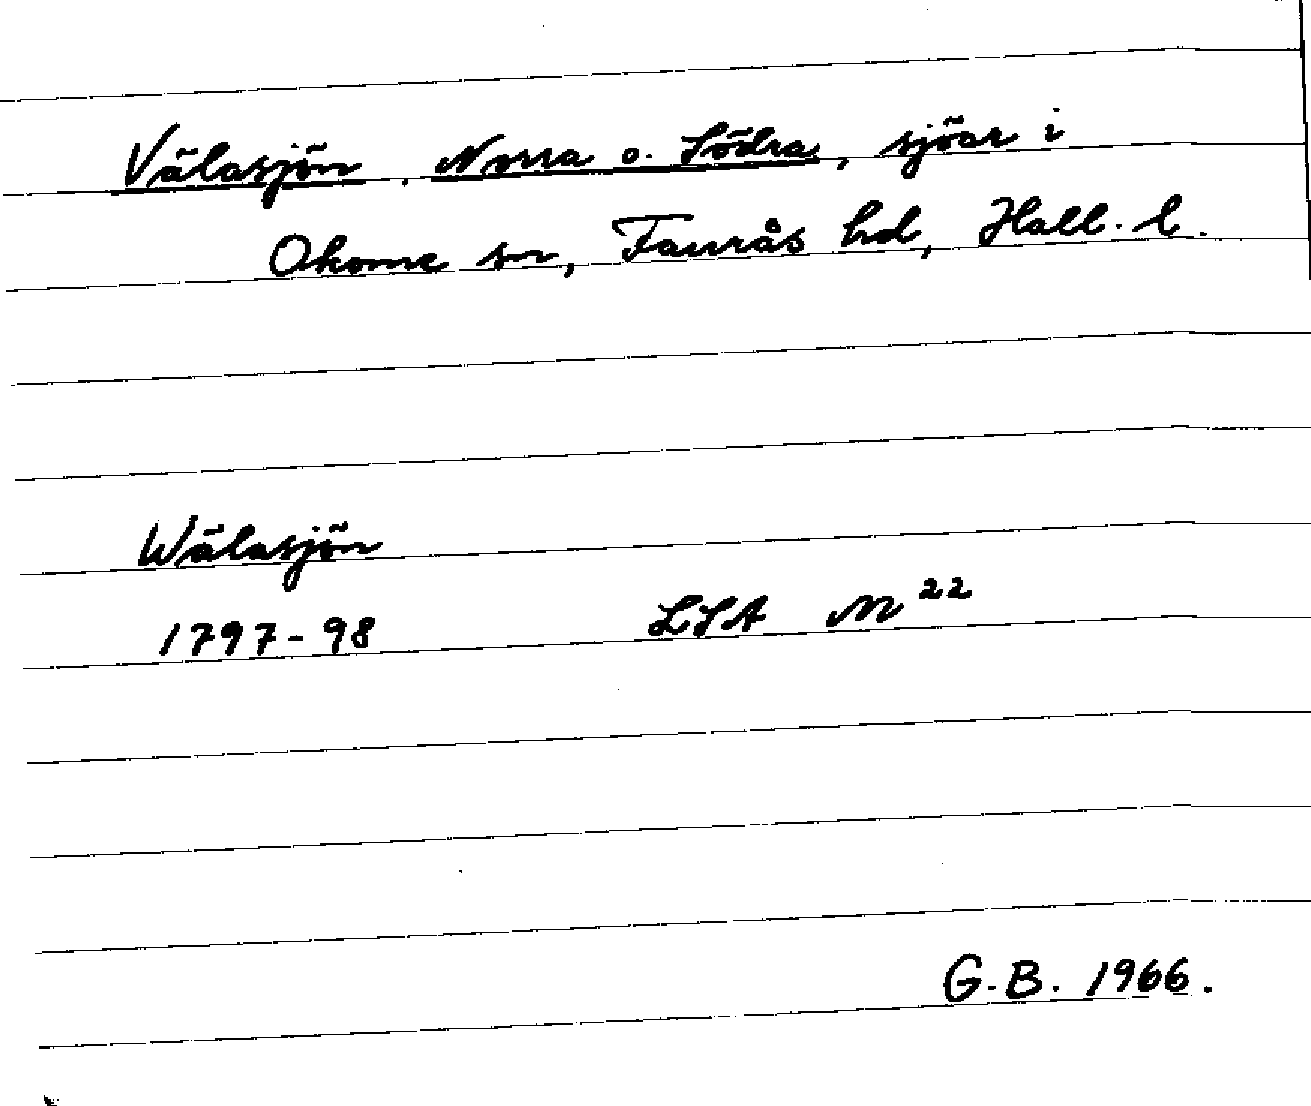 Välasjön, Norra o. Södra, sjöar i
Okome sn, Faurås hd, Hall. l.
Wälasjön
1797-98 LSA M 22
G.B. 1966.